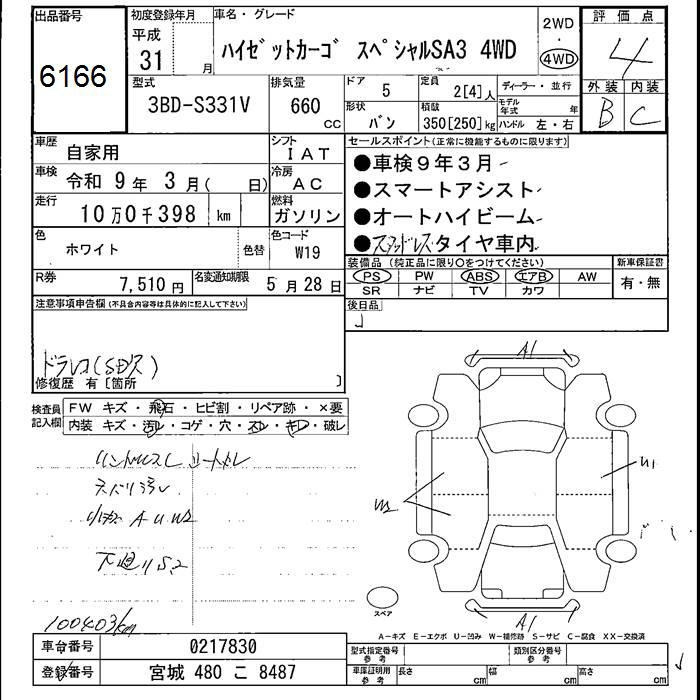 出品番号
6166
初度登録年月
平成
31 月
車名・グレード
ハイゼットカーゴ スペシャルSA3 4WD
2WD
・
4WD
評価点
4
外装 内装
B C
型式
3BD-S331V
排気量
660 CC
ドア
5
定員
2[4]人
ディーラー・並行
形状
バン
積載
350[250]kg
モデル年式 年
ハンドル 左・右
車歴
自家用
シフト
IAT
車検
令和 9年 3月( 日)
冷房
AC
走行
10万0千398 km
燃料
ガソリン
色
ホワイト
色替
色コード
W19
R券
7,510円
名変通知期限
5月28日
セールスポイント(正常に機能するものに限ります)
●車検9年3月
●スマートアシスト
●オートハイビーム
●スタッドレスタイヤ車内
装備品(純正品に限り〇をつけてください)
PS PW ABS エアB AW
SR ナビ TV カワ
新車保証書
有・無
後日品
注意事項申告欄(不具合内容等は具体的に記入して下さい)
ドラレコ(SDレス)
修復歴 有〔箇所 〕
検査員記入欄
FW キズ・飛石・ヒビ割・リペア跡・×要
内装 キズ・汚レ・コゲ・穴・スレ・キレ・破レ
小キズ A U W2
下廻りS2
100403km
A1
W2
U1
A1
スペア
A-キズ E-エクボ U-凹み W-補修跡 S-サビ C-腐食 XX-交換済
車台番号
0217830
登録番号
宮城 480 こ 8487
型式指定番号 参考
類別区分番号 参考
車庫証明用 参考
長さ cm 幅 cm 高さ cm